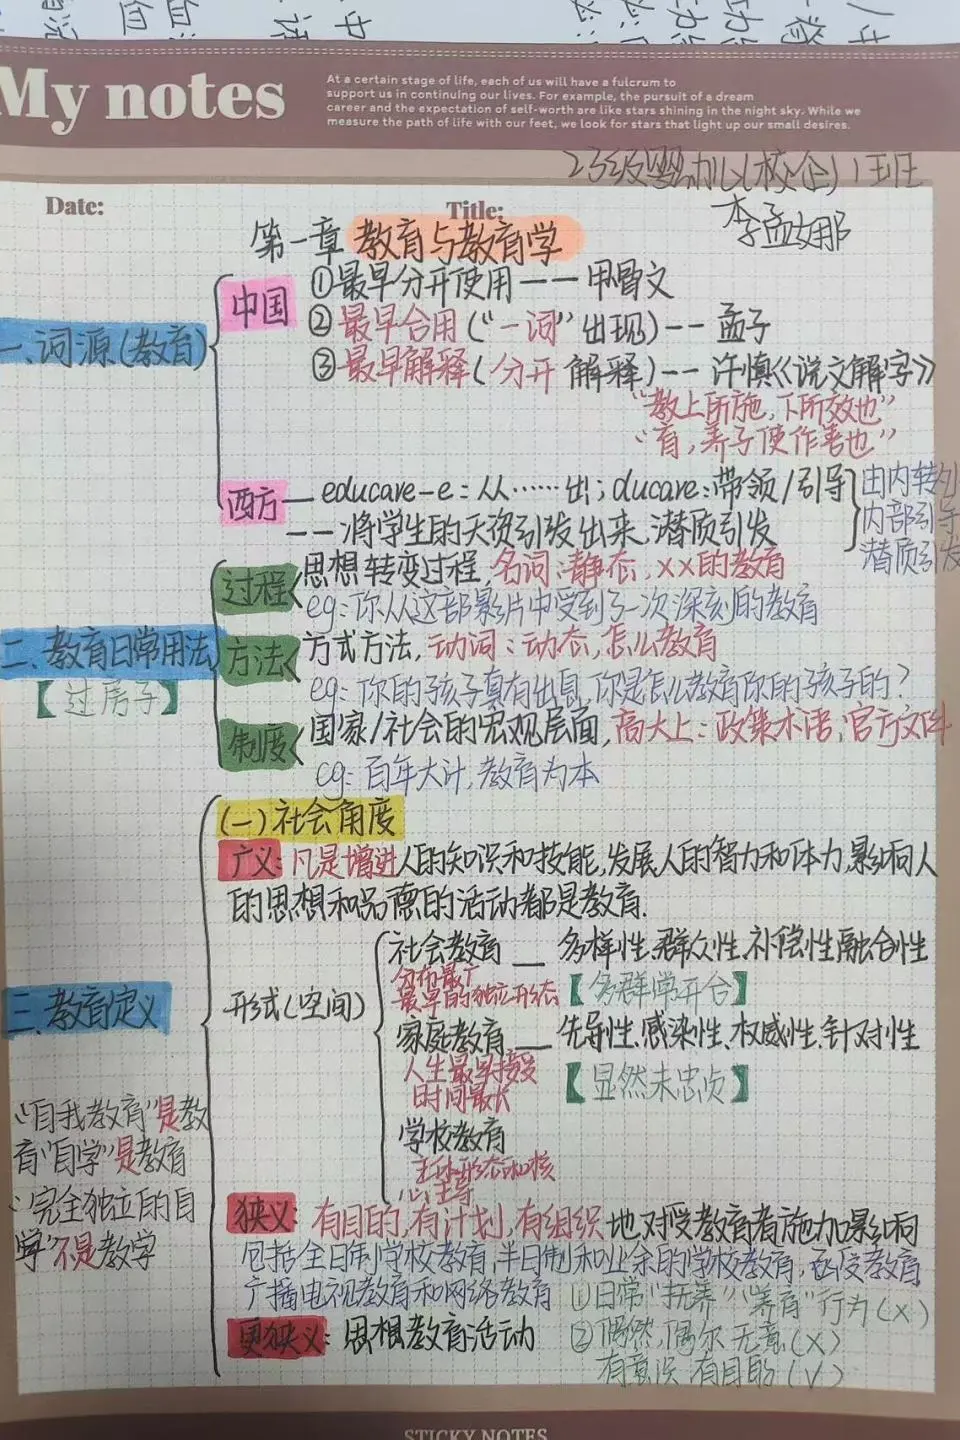 My notes
At a certain stage of life, each of us will have a fulcrum to
support us in continuing our lives. For example, the pursuit of a dream
career and the expectation of self-worth are like stars shining in the night sky. While we
measure the path of life with our feet, we look for stars that light up our small desires.
23级婴幼儿(校企)1班
Date:
Title:
李孟娜
第一章 教育与教育学
一、词源(教育)
中国
①最早分开使用——甲骨文
②最早合用("一词"出现)——孟子
③最早解释(分开解释)——许慎《说文解字》
"教上所施,下所效也"
"育,养子使作善也"
西方—educare-e:从……出;ducare:带领/引导
——将学生的天资引发出来,潜质引发
由内转外
内部引导
潜质引发
二、教育日常用法
【过房子】
过程
思想转变过程,名词:静态,××的教育
eg:你从这部影片中受到了一次深刻的教育
方法
方式方法,动词:动态,怎么教育
eg:你的孩子真有出息,你是怎么教育你的孩子的?
制度
国家/社会的宏观层面,高大上:政策术语,官方文件
eg:百年大计,教育为本
三、教育定义
(一)社会角度
广义:凡是增进人的知识和技能,发展人的智力和体力,影响人
的思想和品德的活动都是教育.
形式(空间)
社会教育—多样性、群众性、补偿性、融合性
分布最广
最早的独立形态
【多群学开台】
家庭教育—先导性、感染性、权威性、针对性
人生最早接受
时间最长
【显然未忠贞】
学校教育
主体形态和核
心主导
"自我教育"是教
育"自学"是教育
"完全独立的自
学"不是教学
狭义:有目的,有计划,有组织地对受教育者施加影响
包括全日制学校教育,半日制和业余的学校教育,函授教育
广播电视教育和网络教育
①日常"抚养""养育"行为(×)
更狭义:思想教育活动
②偶然,偶尔,无意(×)
有意识 有目的(√)
STICKY NOTES